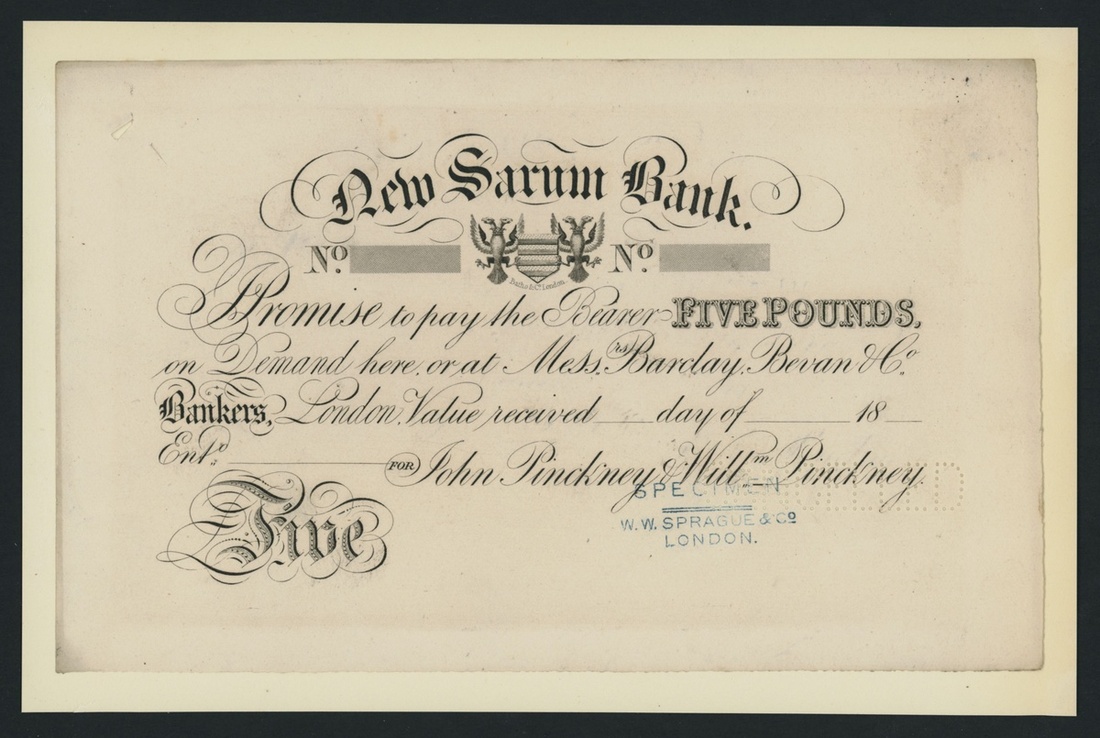 New Sarum Bank.
No. No.
Batho & Co. London
I Promise to pay the Bearer FIVE POUNDS,
on Demand here, or at Messrs. Barclay, Bevan & Co.
Bankers, London. Value received ____ day of ______ 18 __
Entd. ____________ FOR John Pinckney & Willm Pinckney.
SPECIMEN
W.W. SPRAGUE & Co
LONDON.
Five